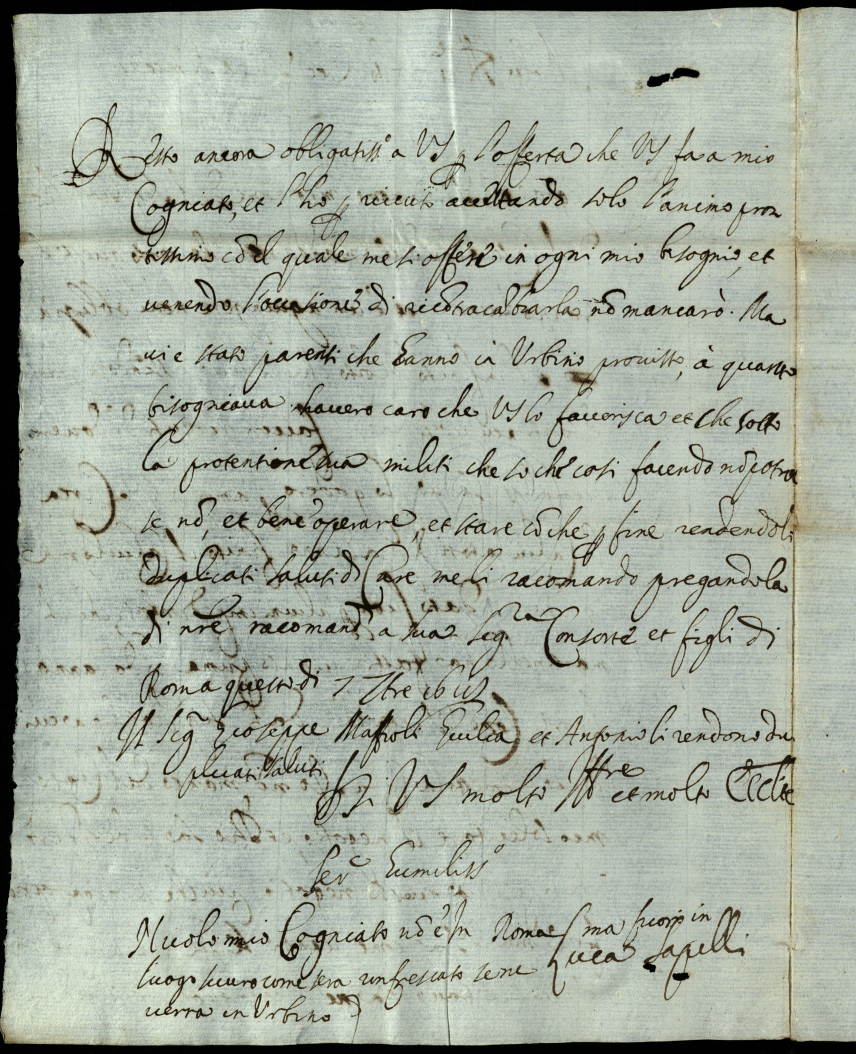 Resto ancora obbligatiss.o a VS p l'offerta che VS fa a mio
Cogniato, et l'ho p riceuto accettando solo l'animo pron
tissimo cō el quale me si offerè in ogni mio bisognio, et
venendo l'occasione di ricōtracābiarla nō mancarò. Ma
vi e stato parenti che hanno in Urbino provisto, à quanto
bisogniava havero caro che VS lo favorisca et che sotto
la protentione sua militi che so chè così facendo nō potra
se nō, et bene operare, et stare cō che p fine rendendoli
duplicati saluti di Care meli racomando pregandola
di nrē racomand a sua Sig.ra Consorte et figli di
Roma questo di 7
Il Sig. Gioseppe Maffioli et Antonio li rendono du
plicati saluti
Di VS molto Ill.re et molto Ecc.te
Ser.e humiliss.o
Nicolo mio Cogniato nō è in Roma ma fuori in
luogo sicuro come sera rinfrescato se ne
verra in Urbino
Luca